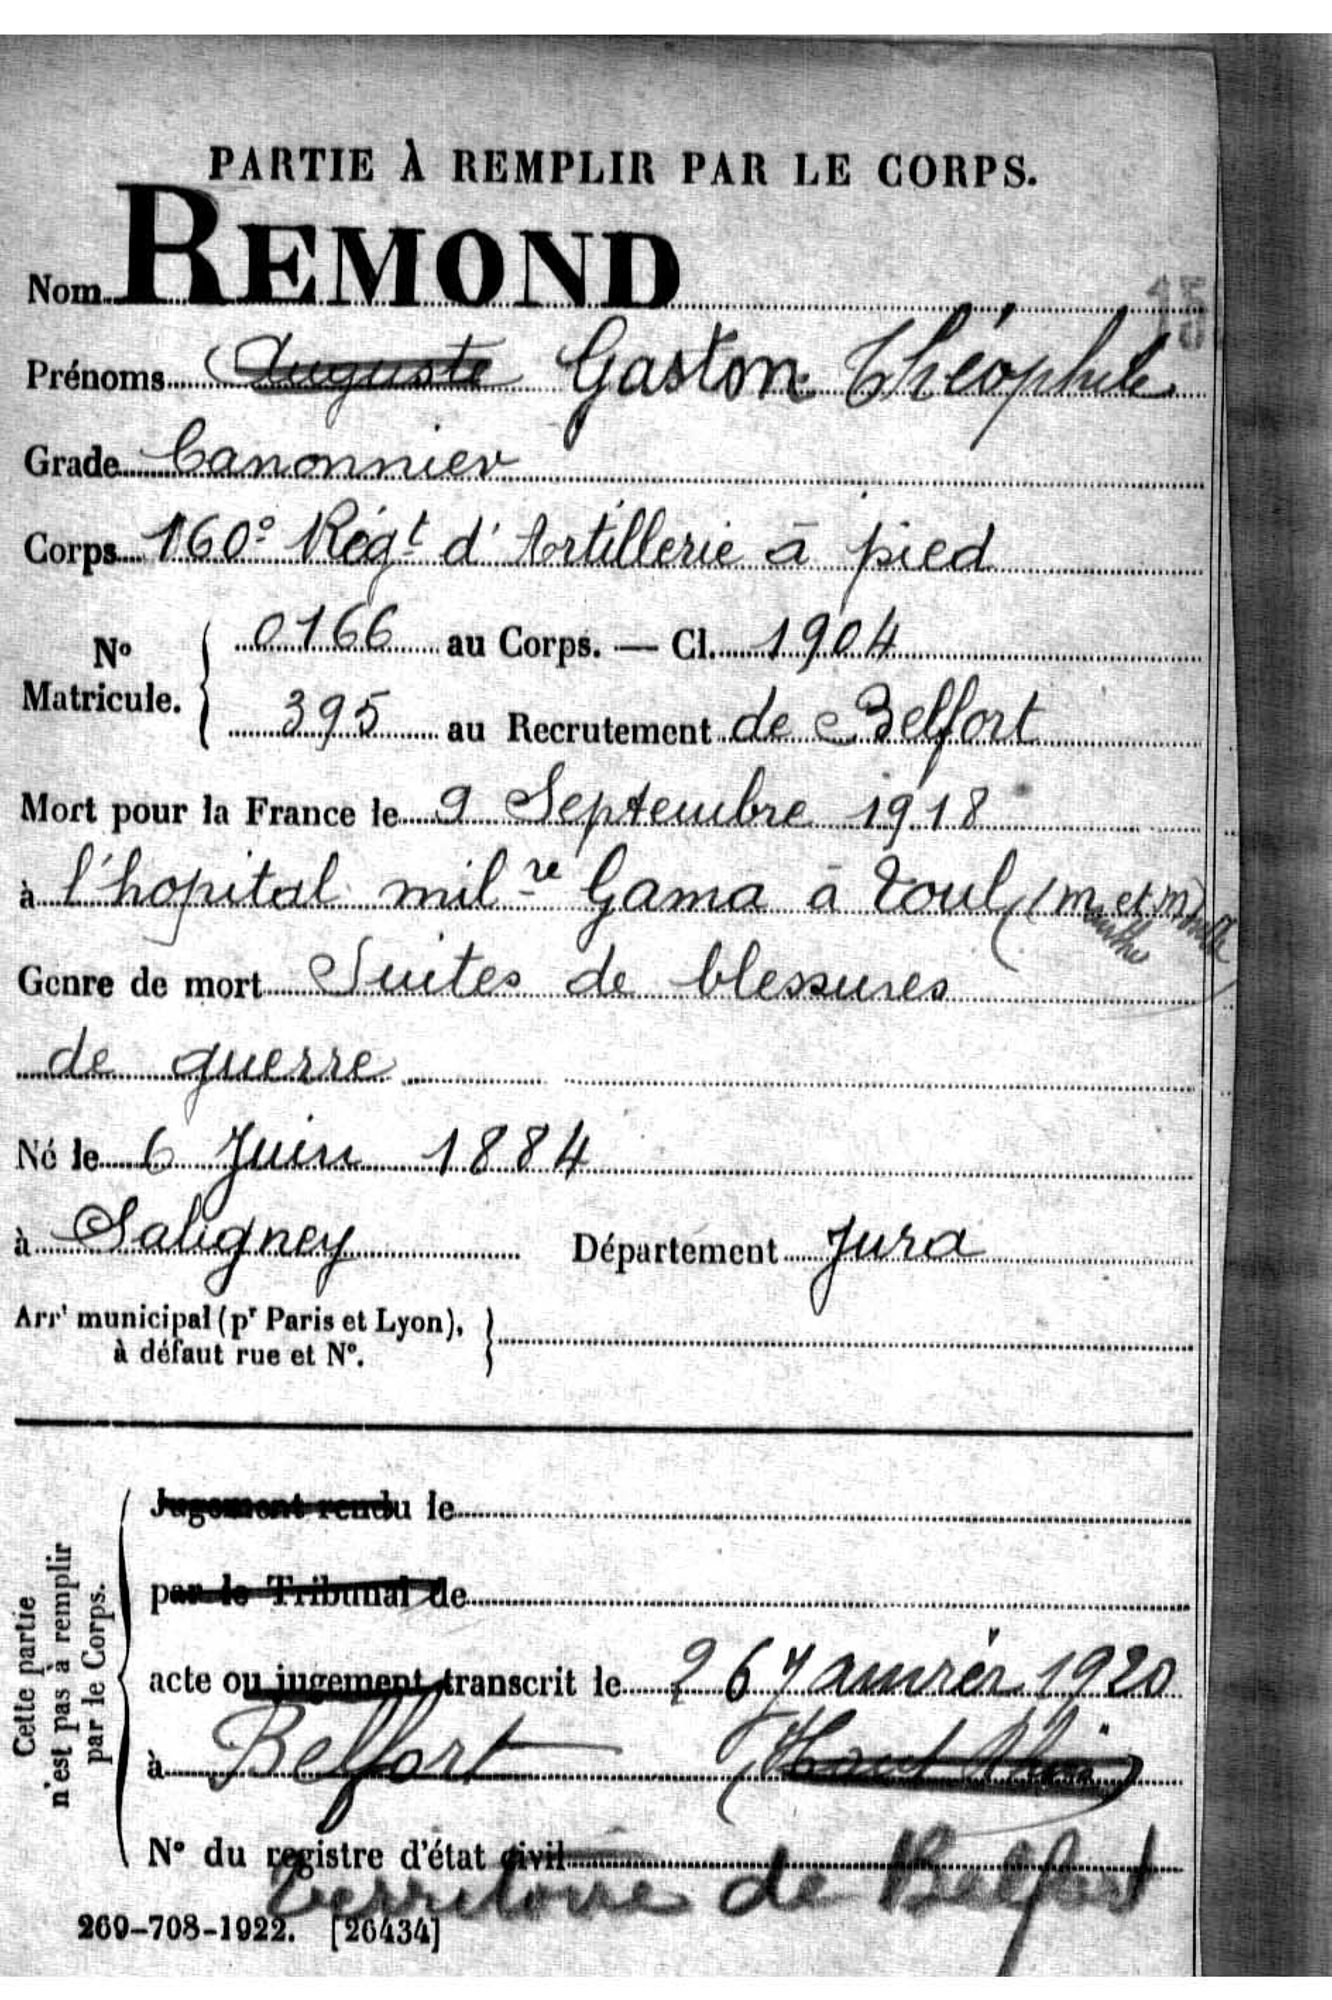 PARTIE À REMPLIR PAR LE CORPS.
15
Nom REMOND
Prénoms Auguste Gaston Théophile
Grade Canonnier
Corps 160e Régt d'Artillerie à pied
No Matricule. { 0166 au Corps. — Cl. 1904
395 au Recrutement de Belfort
Mort pour la France le 9 Septembre 1918
à l'hopital milre Gama à Toul (Meurthe et Mselle)
Genre de mort Suites de blessures
de guerre
Né le 6 Juin 1884
à Saligney Département Jura
Arrt municipal (pr Paris et Lyon), }
à défaut rue et No.
Cette partie
n'est pas à remplir
par le Corps.
Jugement rendu le
par le Tribunal de
acte ou jugement transcrit le 26 Janvier 1920
à Belfort (Haut Rhin)
No du registre d'état civil
Territoire de Belfort
269-708-1922. [26434]